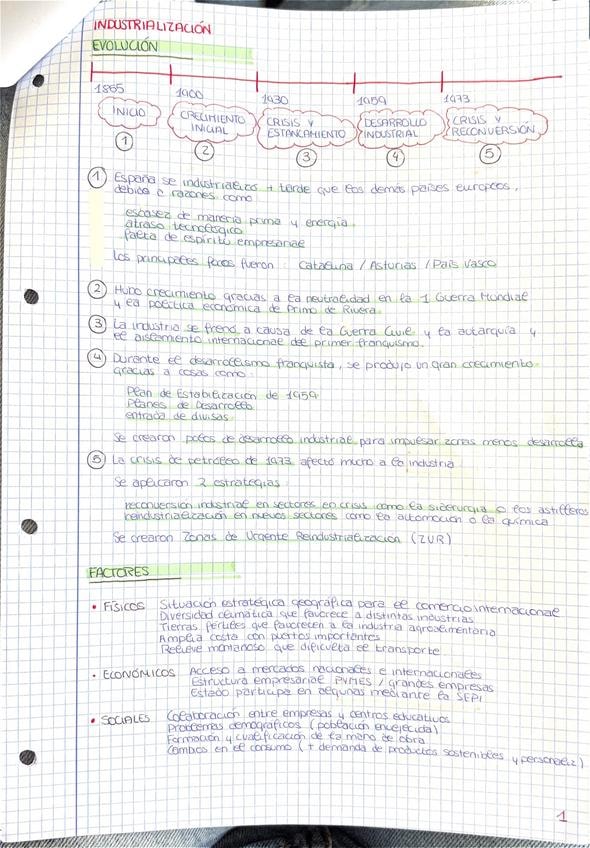 INDUSTRIALIZACIÓN
EVOLUCIÓN
1865 1900 1930 1959 1973
INICIO CRECIMIENTO INICIAL CRISIS Y ESTANCAMIENTO DESARROLLO INDUSTRIAL CRISIS Y RECONVERSIÓN
1 2 3 4 5
1 España se industrializó + tarde que los demás países europeos,
debido a razones como
escasez de materia prima y energía
atraso tecnológico
falta de espíritu empresarial
Los principales focos fueron: Cataluña / Asturias / País Vasco
2 Hubo crecimiento gracias a la neutralidad en la 1 Guerra Mundial
y la política económica de Primo de Rivera.
3 La industria se frenó a causa de la Guerra Civil y la autarquía y
el aislamiento internacional del primer franquismo.
4 Durante el desarrollismo franquista, se produjo un gran crecimiento
gracias a cosas como
Plan de Estabilización de 1959
Planes de Desarrollo
entrada de divisas
Se crearon polos de desarrollo industrial para impulsar zonas menos desarrolla
5 La crisis de petróleo de 1973 afectó mucho a la industria
Se aplicaron 2 estrategias
reconversión industrial en sectores en crisis como la siderurgia o los astilleros
reindustrialización en nuevos sectores como la automoción o la química
Se crearon Zonas de Urgente Reindustrialización (ZUR)
FACTORES
• FÍSICOS Situación estratégica geográfica para el comercio internacional
Diversidad climática que favorece a distintas industrias
Tierras fértiles que favorecen a la industria agroalimentaria
Amplia costa con puertos importantes
Relieve montañoso que dificulta el transporte
• ECONÓMICOS Acceso a mercados nacionales e internacionales
Estructura empresarial PYMES / grandes empresas
Estado participa en algunas mediante la SEPI
• SOCIALES Colaboración entre empresas y centros educativos
Problemas demográficos (población envejecida)
Formación y cualificación de la mano de obra
Cambios en el consumo (+ demanda de productos sostenibles y personaliz)
1